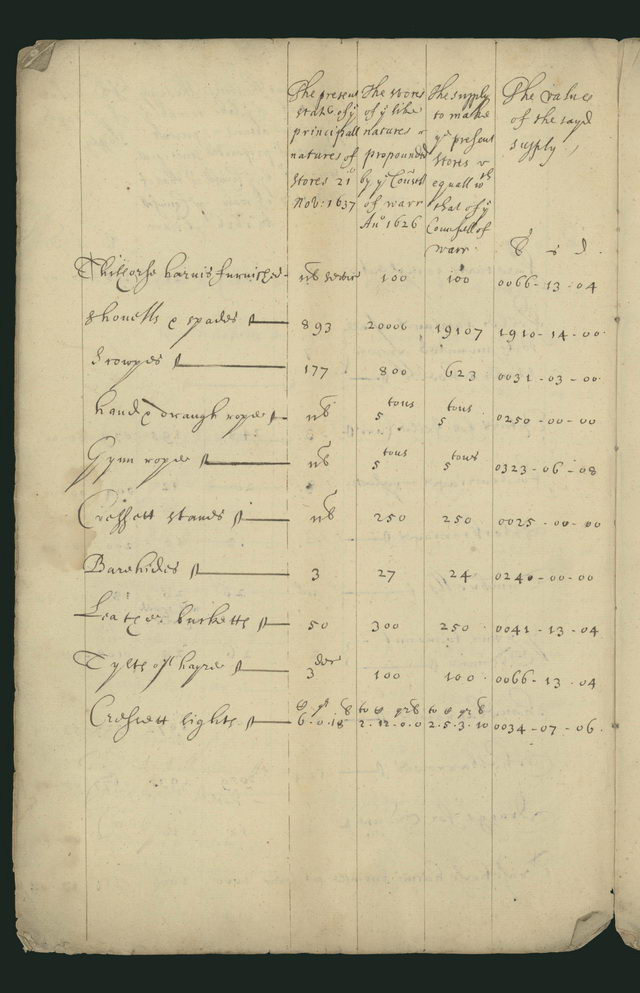 The present state of ye principall natures of Stores 21o Nov: 1637
The stores of ye like natures propounded by ye Counsell of warr Ano 1626
The supply to make ye present stores equall wth that of ye Councell of warr
The value of the sayd supply
li s d
Thillorse harnis furnished nll 100 100 0066-13-04
Shovells & spades 893 20006 19107 1910-14-00
Crowes 177 800 623 0031-03-00
hand & draugh ropes nll 5 tons 5 tons 0250-00-00
Gynn ropes nll 5 tons 5 tons 0323-06-08
Cressett staves nll 250 250 0025-00-00
Barehides 3 27 24 0240-00-00
Leather bucketts 50 300 250 0041-13-04
Tylts of hayre 3 100 100 0066-13-04
Cressett lights 6-0-18 2-12-0-0 2-5-3-10 0034-07-06